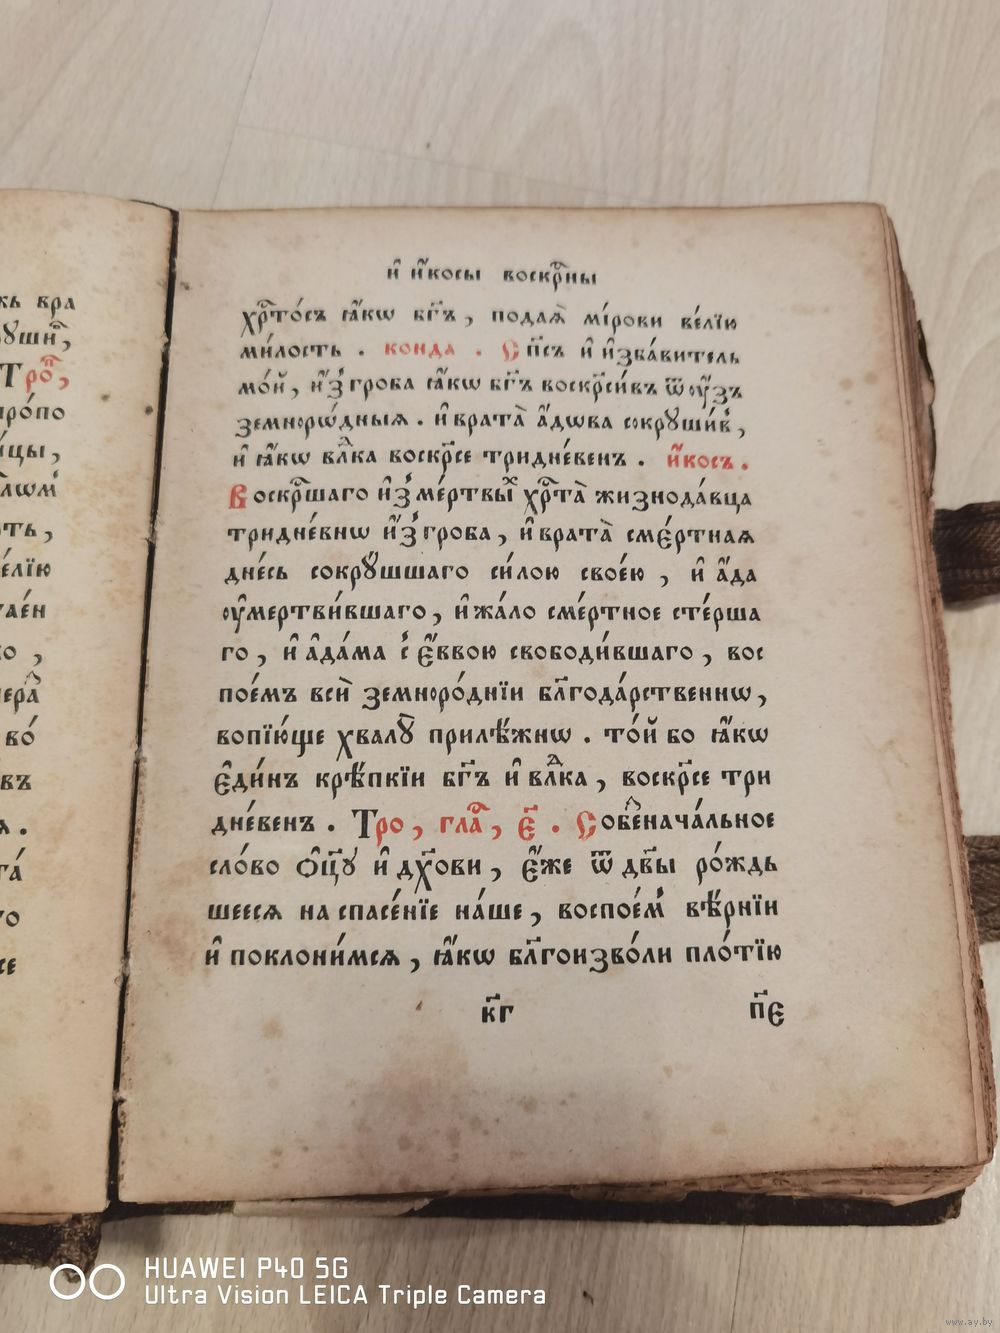 и҆ и҆́косы воскр҇ны
хр҇то́съ ꙗ҆́кѡ бг҃ъ, подаѧ̀ мі́рови ве́лїю
ми́лость. конда. Сп҃съ и҆ и҆зба́витель
мо́й, и҆́з̾ гроба ꙗ҆́кѡ бг҃ъ воскр҇си́въ ѿ оу҆́зъ
земнорѡ́дныѧ. и҆ врата̀ а҆́дѡва сокрꙋши́в̾,
и҆ ꙗ҆́кѡ влⷣка воскр҇се тридне́венъ. и҆́косъ.
Воскр҇шаго и҆з̾ ме́ртвыⷯ хр҇та̀ жизнода́вца
тридне́внѡ и҆́з̾ гроба, и҆ врата̀ сме́ртнаѧ
дне́сь сокрꙋ́шшаго си́лою свое́ю, и҆ а҆́да
оу҆мертви́вшаго, и҆ жа́ло сме́ртное сте́рша
го, и҆ а҆да́ма с̾ є҆́ввою свободи́вшаго, вос
пое́мъ всѝ земноро́днїи бл҃года́рственнѡ,
вопїю́ще хвалꙋ̀ прилѣ́жнѡ. то́й бо ꙗ҆́кѡ
є҆ди́нъ крѣ́пкїи бг҃ъ и҆ влⷣка, воскр҇се три
дне́венъ. Тро, глаⷭ҇, є҃. Собезнача́льное
сло́во ѻ҆ц҃ꙋ̀ и҆ дх҃ови, є҆́же ѿ дв҃ы ро́ждь
шеесѧ на спасе́нїе на́ше, воспое́м̾ вѣ́рнїи
и҆ поклони́мсѧ, ꙗ҆́кѡ бл҃гоизво́ли пло́тїю
к҃г
п҃є
вра
ꙋши́,
Троⷫ҇,
про́по
и́цы,
е́лїю
во́
HUAWEI P40 5G
Ultra Vision LEICA Triple Camera
www.ay.by